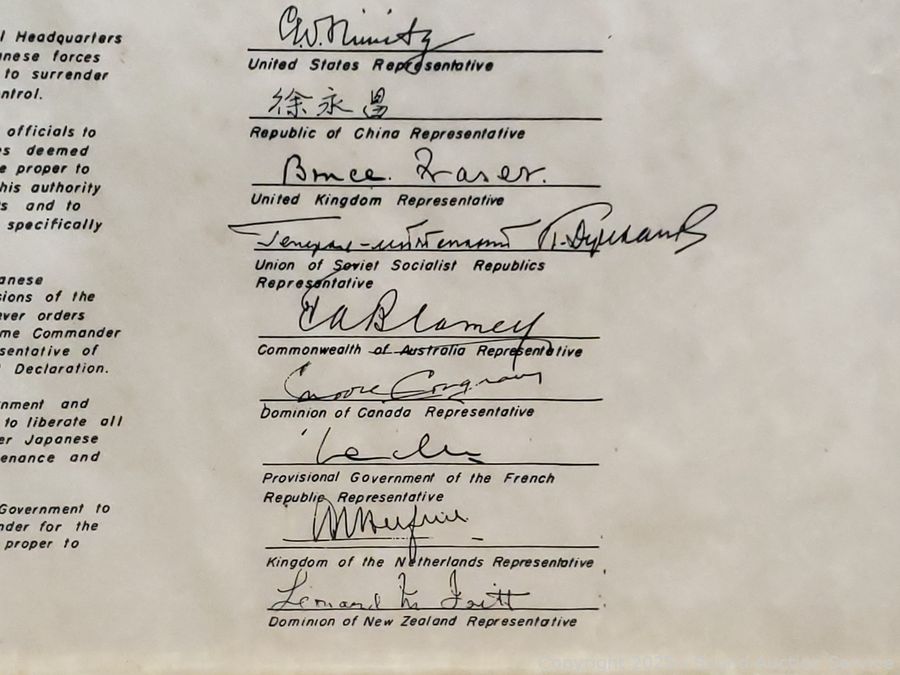 l Headquarters
anese forces
to surrender
ntrol.
officials to
s deemed
e proper to
his authority
s and to
specifically
anese
ions of the
ver orders
me Commander
sentative of
Declaration.
nment and
to liberate all
er Japanese
enance and
Government to
nder for the
proper to
C.W. Nimitz
United States Representative
徐永昌
Republic of China Representative
Bruce Fraser.
United Kingdom Representative
Генерал-лейтенант Деревянко
Union of Soviet Socialist Republics
Representative
T A Blamey
Commonwealth of Australia Representative
Moore Cosgrave
Dominion of Canada Representative
Provisional Government of the French
Republic Representative
Kingdom of the Netherlands Representative
Leonard M Isitt
Dominion of New Zealand Representative
Copyright Sound Auction Service